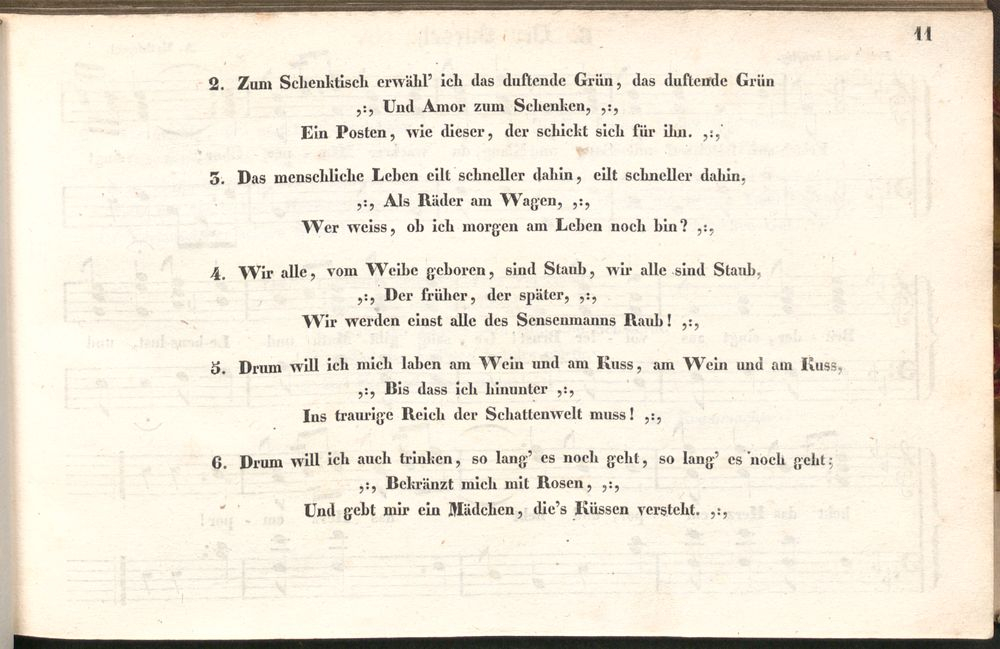 11
2. Zum Schenktisch erwähl' ich das duftende Grün, das duftende Grün
,:, Und Amor zum Schenken, ,:,
Ein Posten, wie dieser, der schickt sich für ihn. ,:,
3. Das menschliche Leben eilt schneller dahin, eilt schneller dahin,
,:, Als Räder am Wagen, ,:,
Wer weiss, ob ich morgen am Leben noch bin? ,:,
4. Wir alle, vom Weibe geboren, sind Staub, wir alle sind Staub,
,:, Der früher, der später, ,:,
Wir werden einst alle des Sensenmanns Raub! ,:,
5. Drum will ich mich laben am Wein und am Kuss, am Wein und am Kuss,
,:, Bis dass ich hinunter ,:,
Ins traurige Reich der Schattenwelt muss! ,:,
6. Drum will ich auch trinken, so lang' es noch geht, so lang' es noch geht;
,:, Bekränzt mich mit Rosen, ,:,
Und gebt mir ein Mädchen, die's Küssen versteht. ,:,